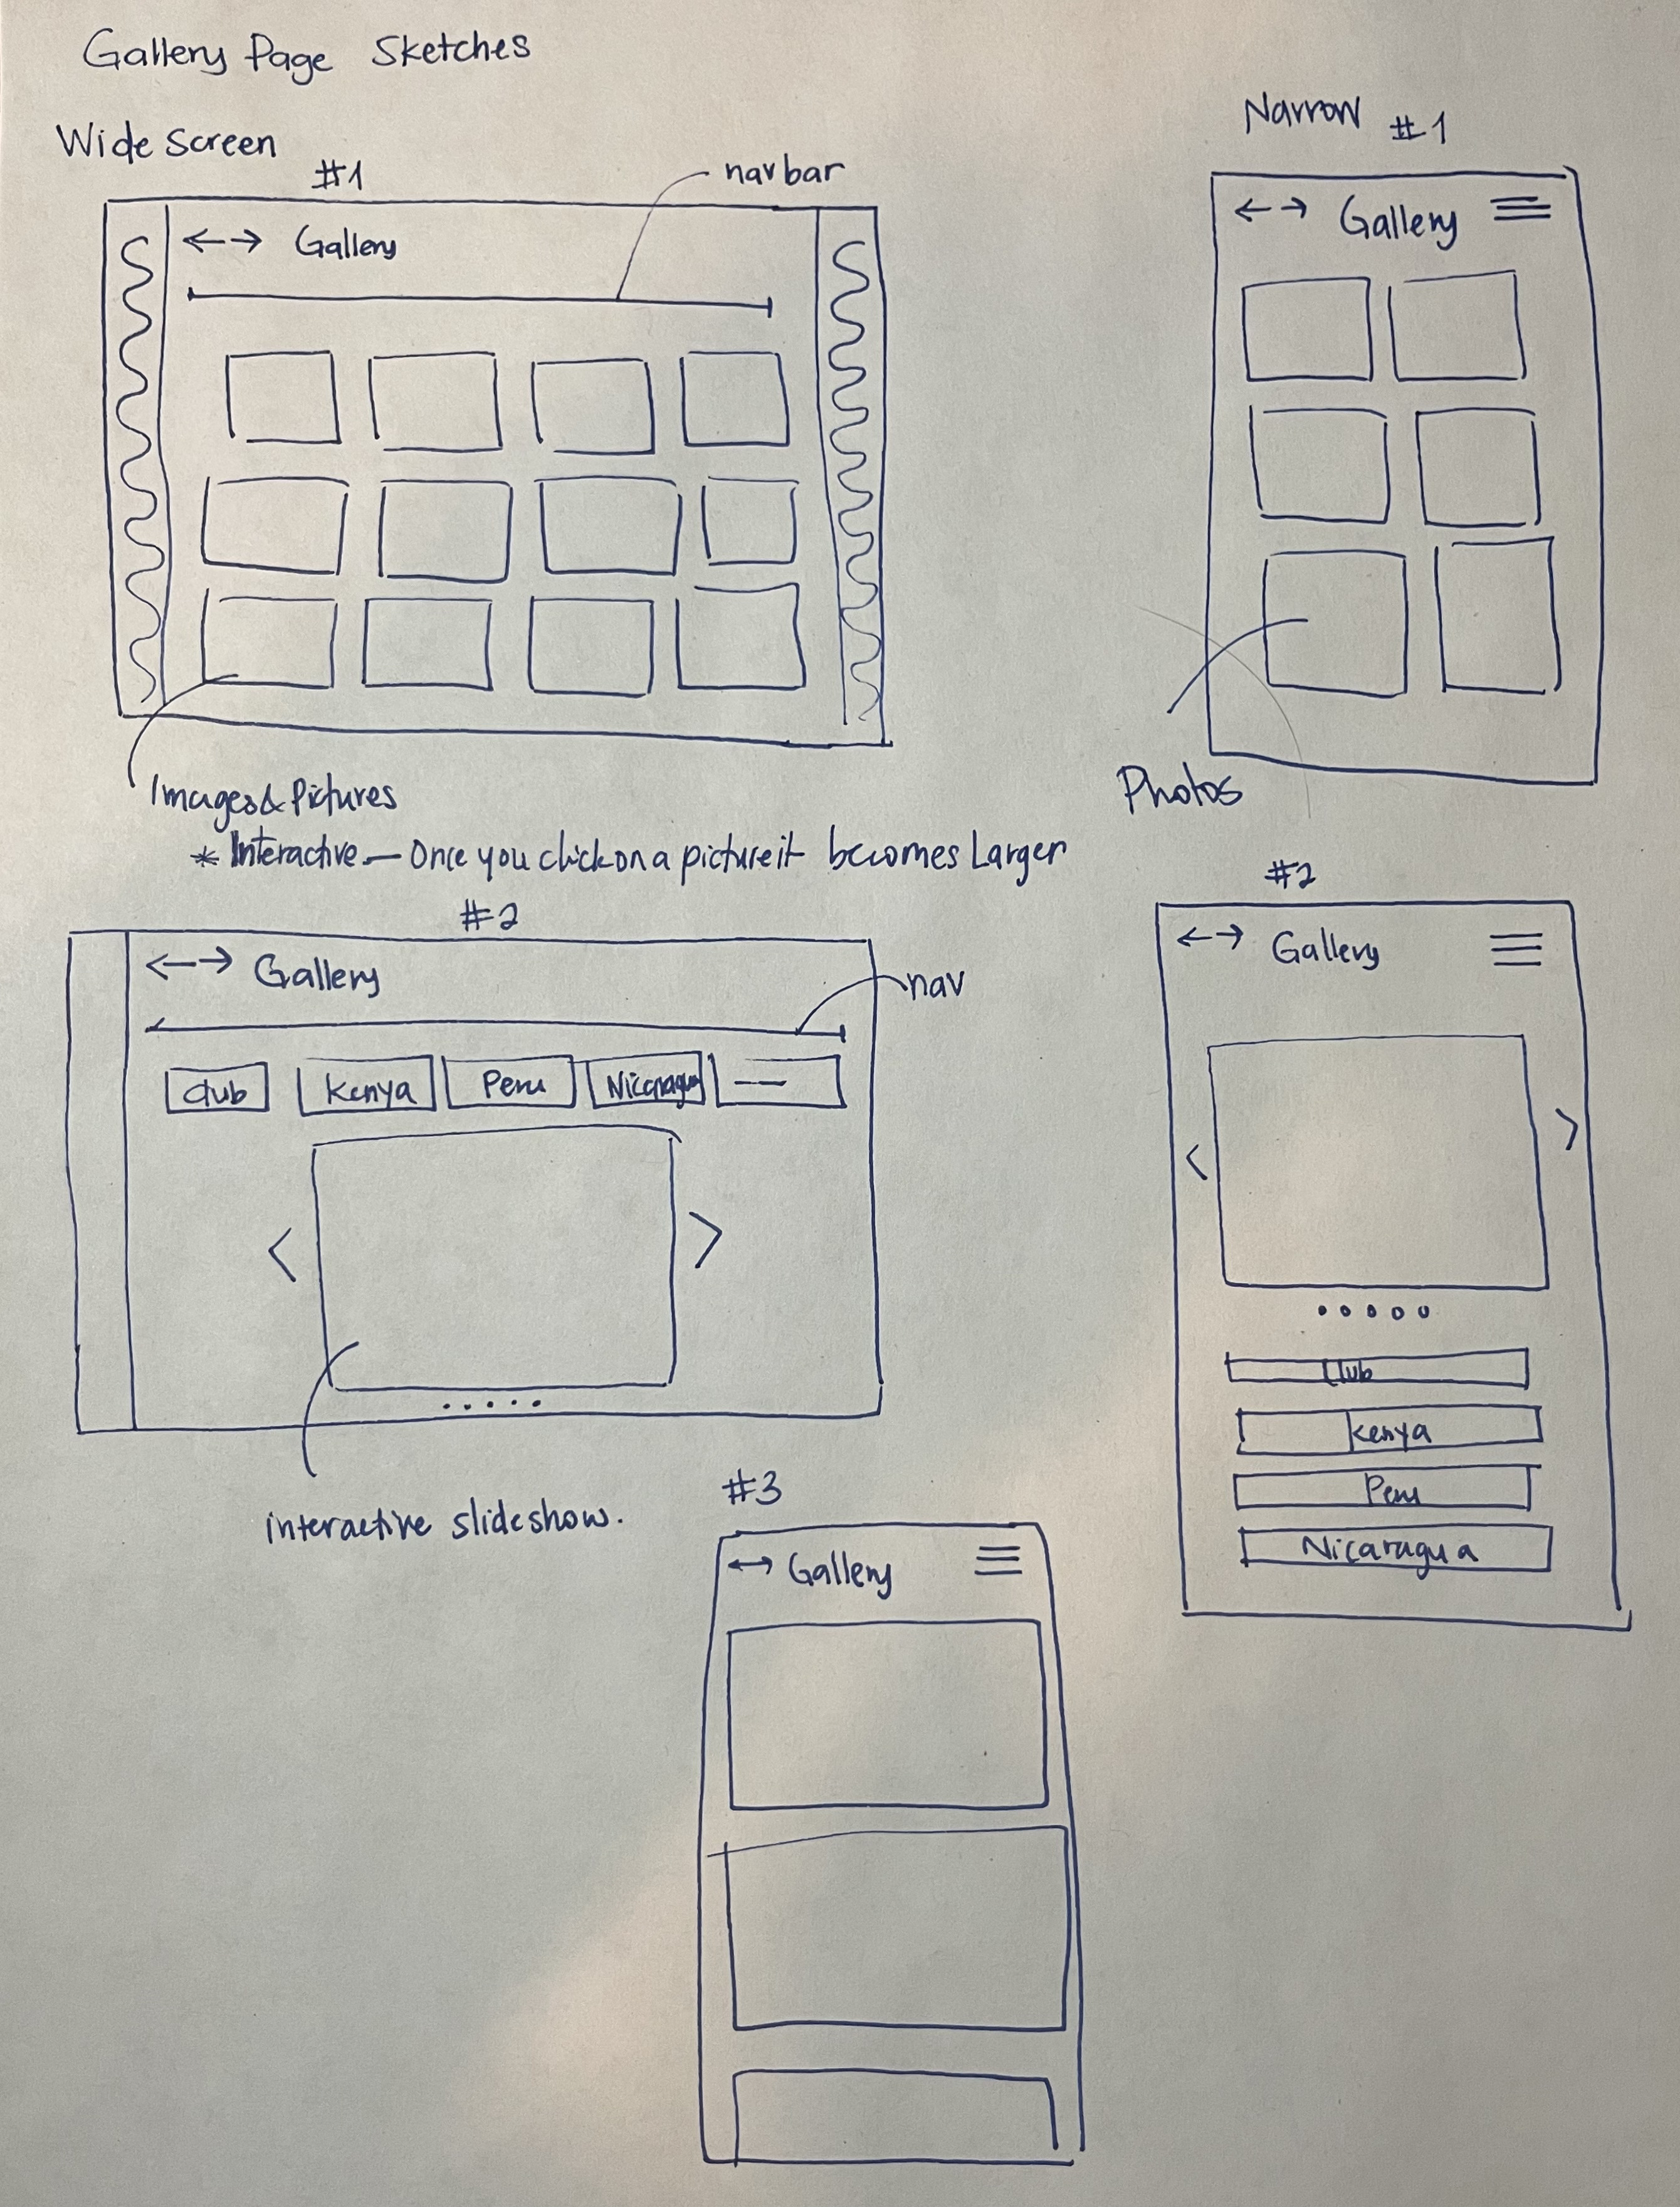 Gallery Page Sketches
Wide Screen
#1
navbar
Gallery
Images & Pictures
* Interactive — Once you click on a picture it becomes Larger
Narrow #1
Gallery
Photos
#2
Gallery
nav
Club Kenya Peru Nicaragua
interactive slideshow.
#2
Gallery
Club
Kenya
Peru
Nicaragua
#3
Gallery